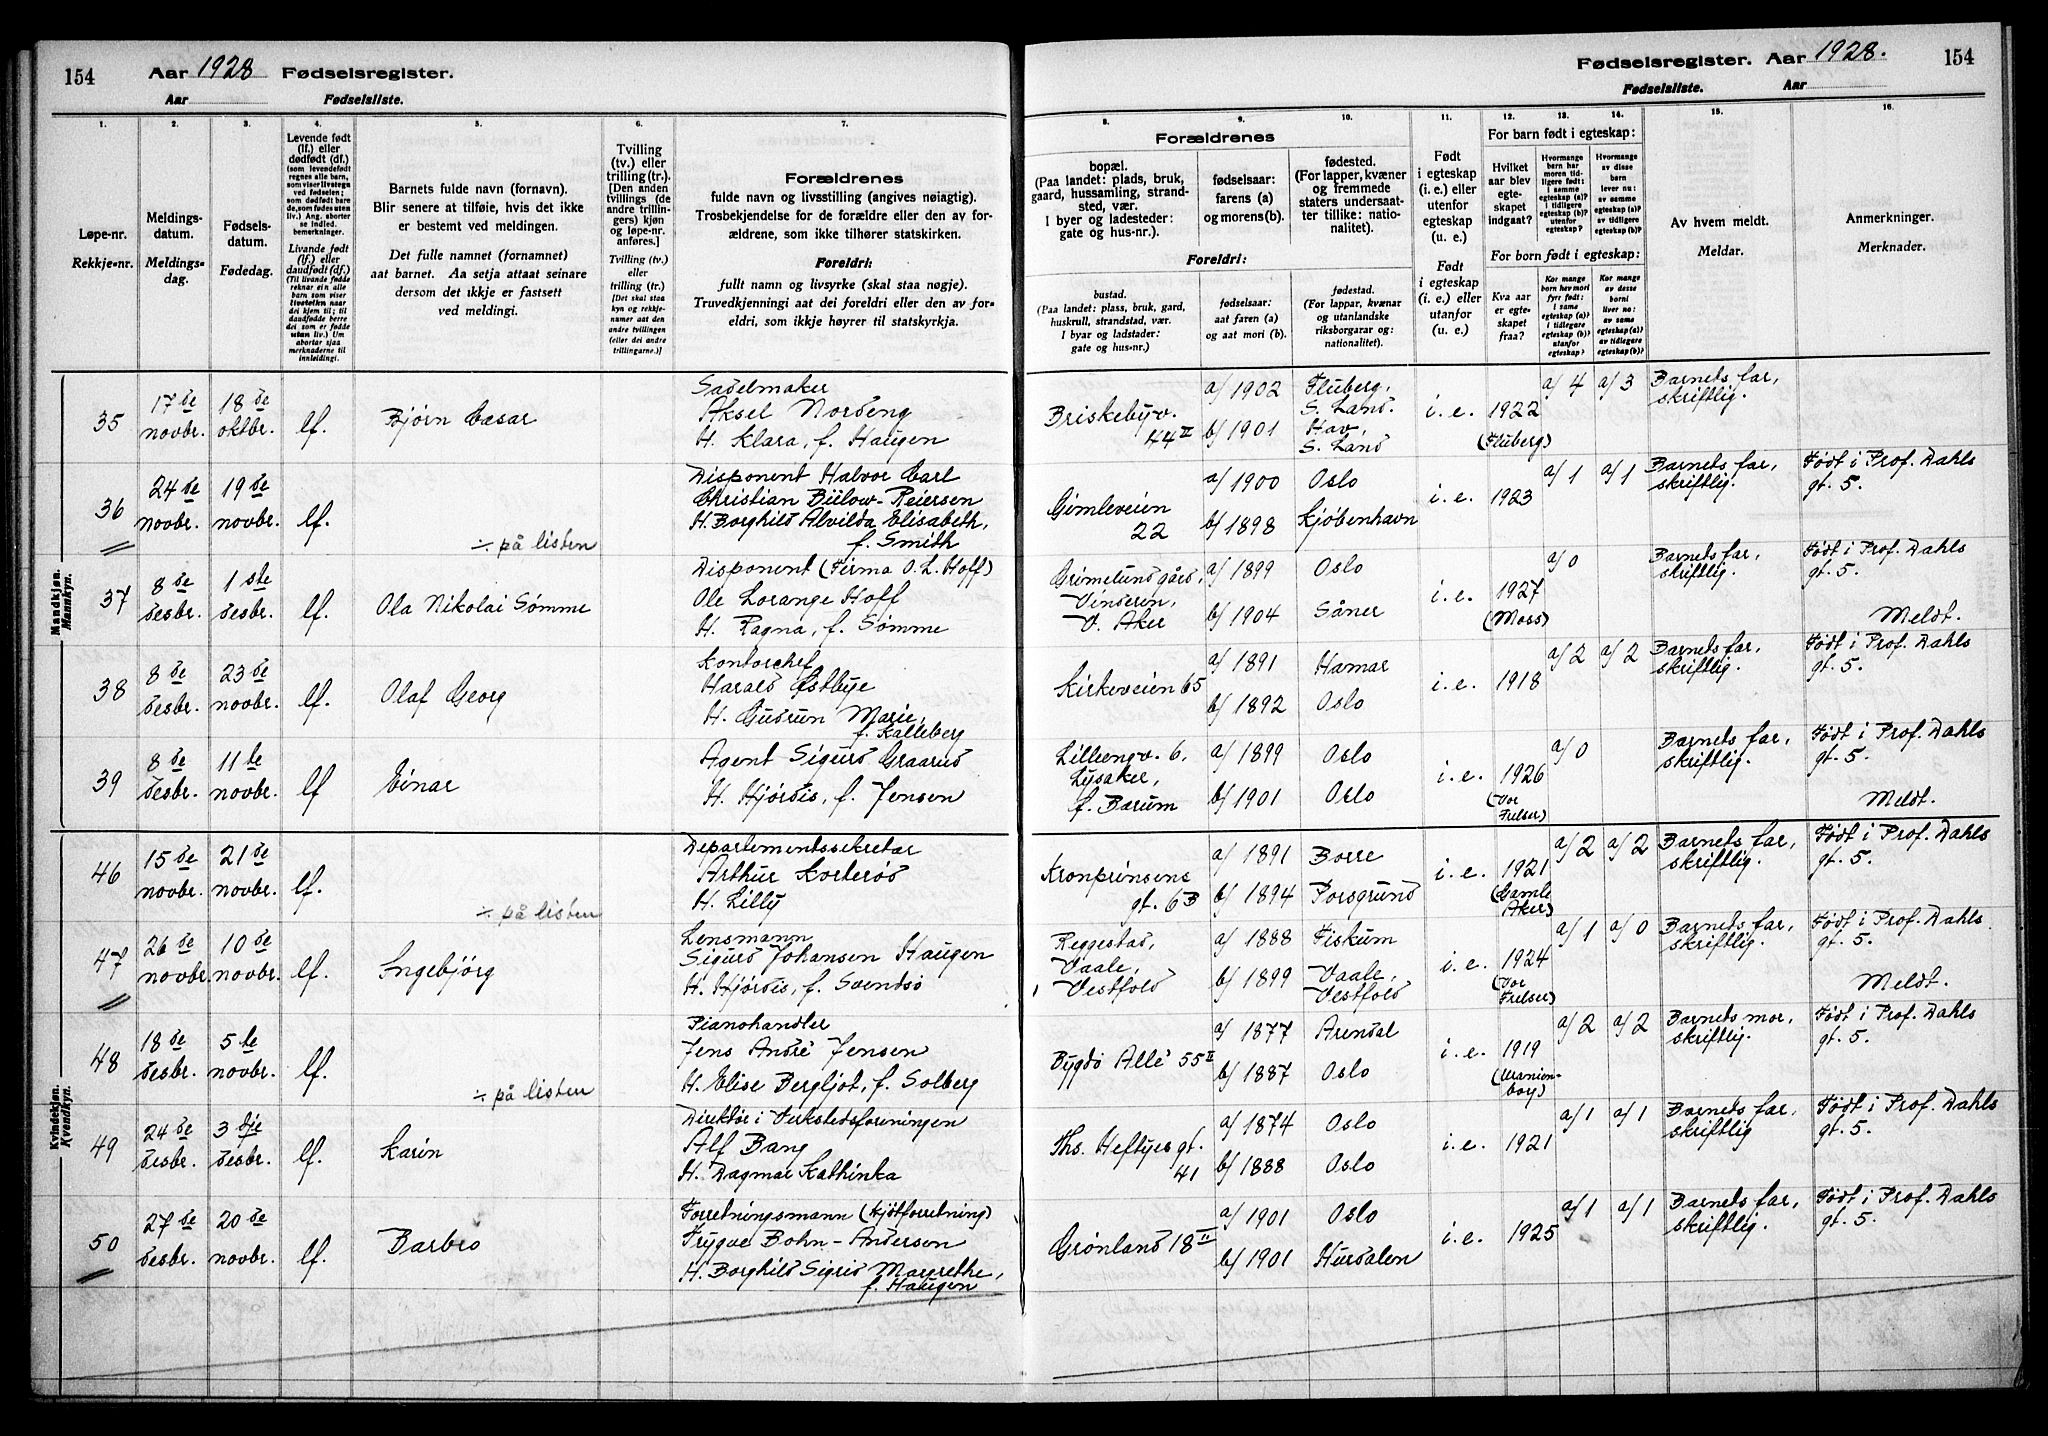 154 Aar 1928 Fødselsregister.
Aar Fødselsliste.
Fødselsregister. Aar 1928. 154
Fødselsliste. Aar
1.
Løpe-nr.
Rekkje-nr.
2.
Meldings-
datum.
Meldings-
dag.
3.
Fødsels-
datum.
Fødedag.
4.
Levende født
(lf.) eller
dødfødt (df.)
5.
Barnets fulde navn (fornavn).
Blir senere at tilføie, hvis det ikke
er bestemt ved meldingen.
Det fulle namnet (fornamnet)
aat barnet. Aa setja attaat seinare
dersom det ikkje er fastsett
ved meldingi.
6.
Tvilling
(tv.) eller
trilling (tr.).
[Den anden
tvillings (de
andre trillin-
gers) kjøn
og løpe-nr.
anføres.]
Tvilling (tv.)
eller
trilling (tr.)
[Det skal staa
kyn og rekkje-
numer aat den
andre tvillingen
(eller dei andre
trillingarne.)]
7.
Forældrenes
fulde navn og livsstilling (angives nøiagtig).
Trosbekjendelse for de forældre eller den av for-
ældrene, som ikke tilhører statskirken.
Foreldri:
fullt namn og livsyrke (skal staa nøgje).
Truvedkjenningi aat dei foreldri eller den av for-
eldri, som ikkje høyrer til statskyrkja.
Forældrenes
8.
bopæl.
(Paa landet: plads, bruk,
gaard, hussamling, strand-
sted, vær.
I byer og ladesteder:
gate og hus-nr.).
Foreldri:
bustad.
(Paa landet: plass, bruk, gard,
huskrull, strandstad, vær.
I byar og ladstader:
gate og hus-nr.).
9.
fødselsaar:
farens (a)
og morens (b).
fødselsaar:
aat faren (a)
og aat mori (b).
10.
fødested.
(For lapper, kvæner
og fremmede
staters undersaat-
ter tillike: natio-
nalitet).
fødestad.
(For lappar, kvænar
og utanlandske
riksborgarar og:
nationalitet).
11.
Født
i egteskap
(i. e.) eller
utenfor
egteskap
(u. e.).
Født
i egteskap
(i. e.) eller
utanfor
(u. e.).
12. 13. 14.
For barn født i egteskap:
Hvilket
aar blev
egte-
skapet
indgaat?
For born født i egteskap:
Kva aar
er egte-
skapet
fraa?
15.
Av hvem meldt.
Meldar.
16.
Anmerkninger.
Merknader.
Mandkjøn.
Mannkyn.
35
17de novbr.
18de oktbr.
lf.
Bjørn Cæsar
Sadelmaker
Aksel Nordeng
H. Klara, f. Haugen
Briskebyv.
44 II
a/ 1902
b/ 1901
Fluberg,
S. Land.
Hav,
S. Land
i. e.
1922
(Fluberg)
a/ 4
a/ 3
Barnets far,
skriftlig.
36
24de novbr.
19de novbr.
lf.
÷ på listen
Disponent Halvor Carl
Christian Bülow-Reiersen
H. Borghild Alvilda Elisabeth,
f. Smith
Gimleveien
22
a/ 1900
b/ 1898
Oslo
Kjøbenhavn
i. e.
1923
a/ 1
a/ 1
Barnets far,
skriftlig.
Født i Prof. Dahls
gt. 5.
37
8de desbr.
1ste desbr.
lf.
Ola Nikolai Sømme
Disponent (Firma O. L. Hoff)
Ole Lorange Hoff
H. Ragna, f. Sømme
Grimelund gård,
Vinderen,
V. Aker
a/ 1899
b/ 1904
Oslo
Såner
i. e.
1927
(Moss)
a/ 0
Barnets far,
skriftlig.
Født i Prof. Dahls
gt. 5.
Meldt.
38
8de desbr.
23de novbr.
lf.
Olaf Georg
Kontorchef
Harald Østbye
H. Gudrun Marie,
f. Kalleberg
Kirkeveien 65
a/ 1891
b/ 1892
Hamar
Oslo
i. e.
1918
a/ 2
a/ 2
Barnets far,
skriftlig.
Født i Prof. Dahls
gt. 5.
39
8de desbr.
11te novbr.
lf
Einar
Agent Sigurd Graarud
H. Hjørdis, f. Jensen
Lilleengv. 6.
Lysaker,
f. Bærum
a/ 1899
b/ 1901
Oslo
Oslo
i. e.
1926
(Vor
Frelser)
a/ 0
Barnets far,
skriftlig.
Født i Prof. Dahls
gt. 5.
Meldt.
Kvindekjøn.
Kvendkyn.
46
15de novbr.
21de novbr.
lf.
÷ på listen
Departementssekretær
Arthur Korterød
H. Lilly
Kronprinsens
gt. 6 B
a/ 1891
b/ 1894
Borre
Porsgrund
i. e.
1921
(Gamle
Aker)
a/ 2
a/ 2
Barnets far,
skriftlig.
Født i Prof. Dahls
gt. 5.
47
26de novbr.
10de novbr.
lf.
Ingebjørg
Lensmann
Sigurd Johansen Haugen
H. Hjørdis, f. Svendsø
Reggestad,
Vaale,
Vestfold
a/ 1888
b/ 1899
Fiskum
Vaale,
Vestfold
i. e.
1924
(Vor
Frelser)
a/ 1
a/ 0
Barnets far,
skriftlig.
Født i Prof. Dahls
gt. 5.
Meldt.
48
18de desbr.
5te novbr.
lf.
÷ på listen
Pianohandler
Jens André Jensen
H. Elise Bergljot, f. Solberg
Bygdø Allé 55 II
a/ 1877
b/ 1887
Arendal
Oslo
i. e.
1919
(Uranien-
borg)
a/ 2
a/ 2
Barnets mor,
skriftlig.
Født i Prof. Dahls
gt. 5.
49
24de desbr.
3dje desbr.
lf.
Karin
Direktør i Verkstedsforeningen
Alf Bang
H. Dagmar Kathinka
Ths. Heftyes gt.
41
a/ 1874
b/ 1888
Oslo
Oslo
i. e.
1921
a/ 1
a/ 1
Barnets far,
skriftlig
Født i Prof. Dahls
gt. 5.
50
27de desbr.
20de novbr.
lf.
Barbro
Forretningsmann (Kjøtforretning)
Trygve Bohn-Andersen
H. Borghild Sigrid Margrethe,
f. Haugen
Grønland 18 II
a/ 1901
b/ 1901
Oslo
Hurdalen
i. e.
1925
a/ 1
a/ 1
Barnets far,
skriftlig.
Født i Prof. Dahls
gt. 5.